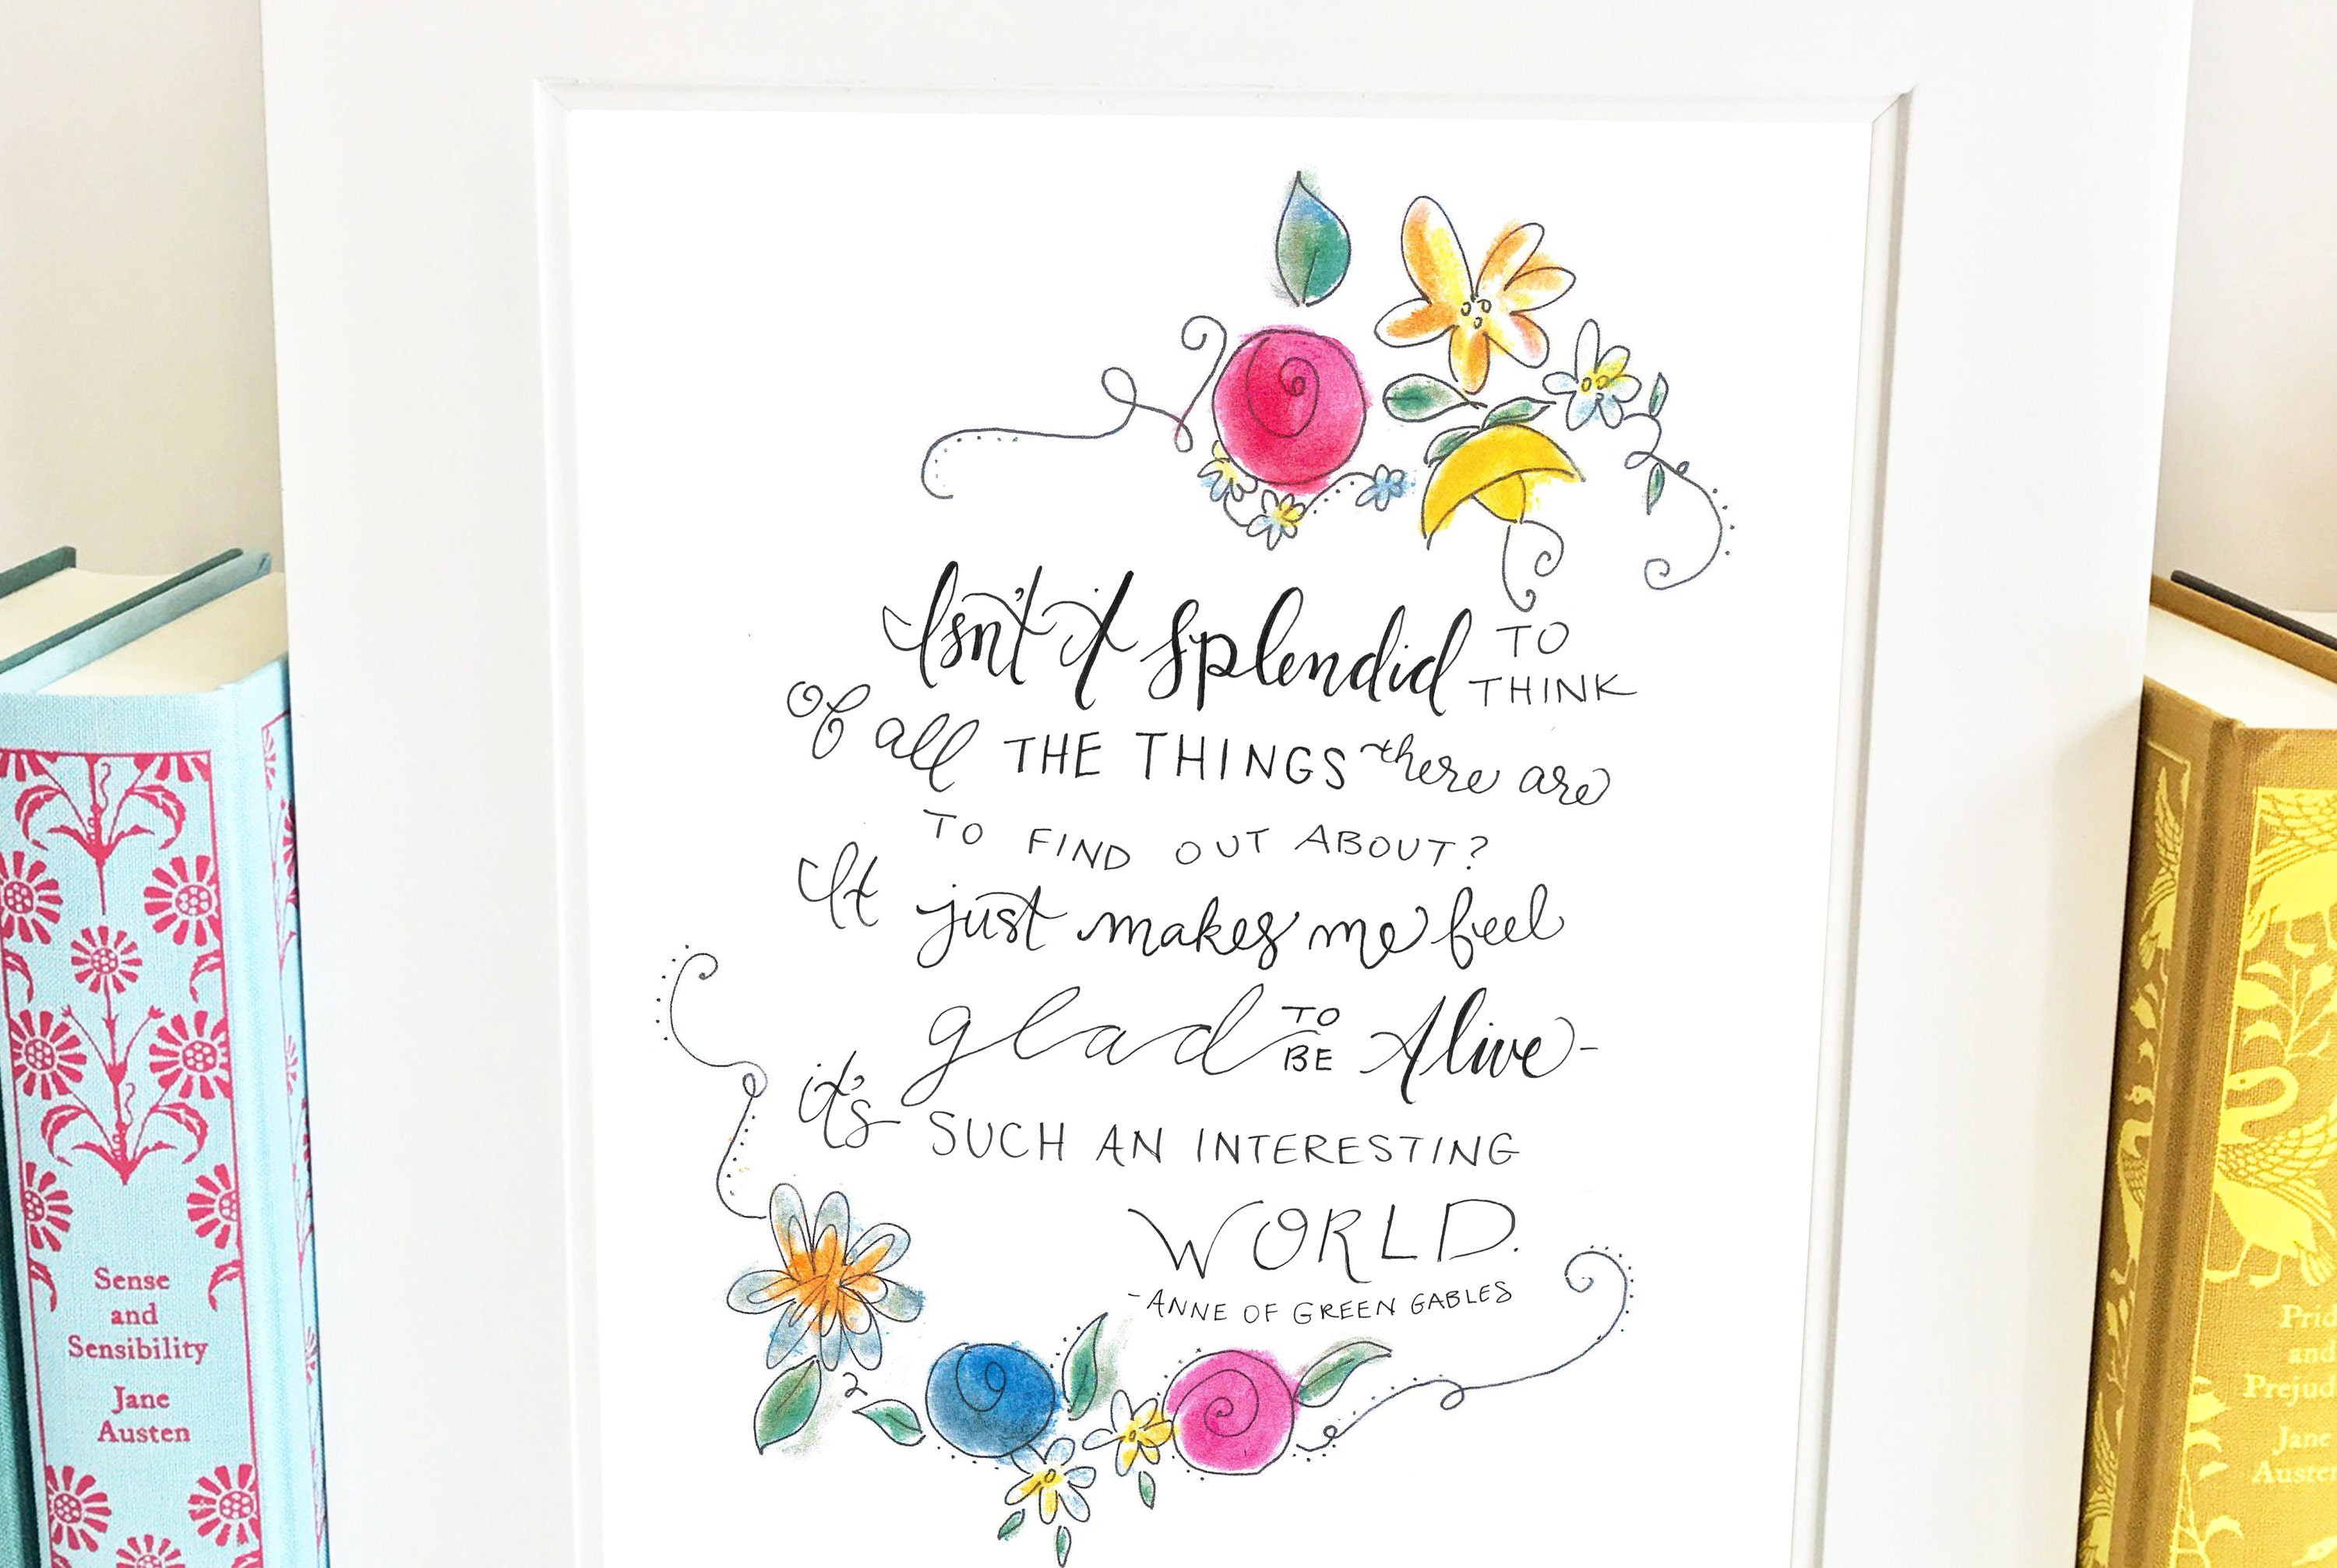 Isn't it splendid TO THINK
of all THE THINGS there are
TO FIND OUT ABOUT?
It just makes me feel
glad TO BE Alive-
it's SUCH AN INTERESTING
WORLD.
-ANNE OF GREEN GABLES
Sense
and
Sensibility
Jane
Austen
Prid
and
Prejud
Jane
Austen